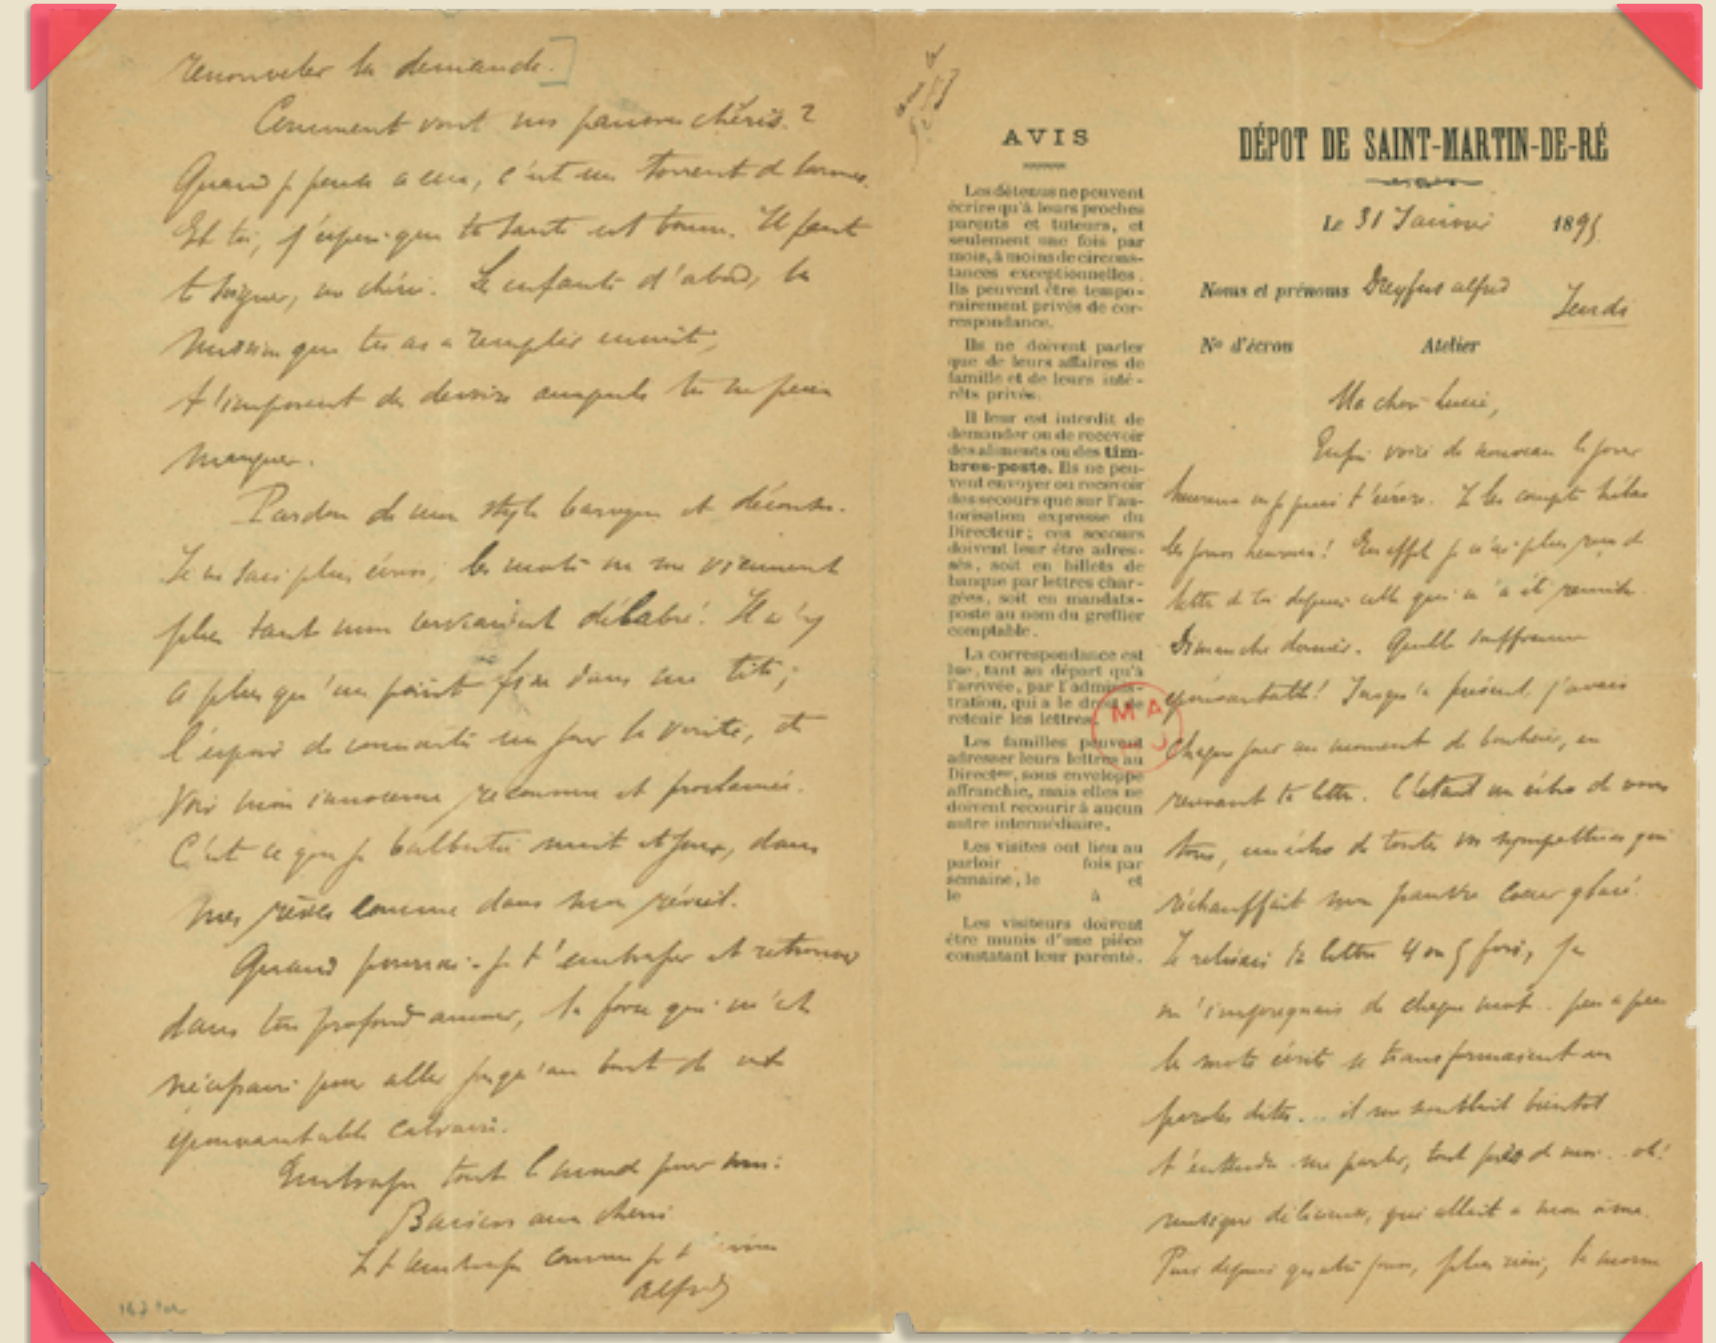 renouveler la demande.]
Comment vont nos pauvres chéris ?
Quand je pense à eux, c'est un torrent de larmes.
Et toi, j'espère que ta santé est bonne. Il faut
te soigner, ma chérie. Les enfants d'abord, la
mission que tu as à remplir ensuite,
t'imposent des devoirs auxquels tu ne peux
manquer.
Pardon de mon style baroque et décousu.
Je ne sais plus écrire, les mots ne me viennent
plus tant mon cerveau est délabré. Il n'y
a plus qu'un point fixe dans ma tête ;
l'espoir de connaître un jour la vérité, de
voir mon innocence reconnue et proclamée.
C'est ce que je balbutie nuit et jour, dans
mes rêves comme dans mon réveil.
Quand pourrai-je t'embrasser et retrouver
dans ton profond amour, la force qui m'est
nécessaire pour aller jusqu'au bout de cet
épouvantable calvaire.
Embrasse tout le monde pour moi.
Baisers aux chéris
Je t'embrasse comme je t'aime
Alfred
AVIS
Les détenus ne peuvent
écrire qu'à leurs proches
parents et tuteurs, et
seulement une fois par
mois, à moins de circons-
tances exceptionnelles.
Ils peuvent être tempo-
rairement privés de cor-
respondance.
Ils ne doivent parler
que de leurs affaires de
famille et de leurs inté-
rêts privés.
Il leur est interdit de
demander ou de recevoir
des aliments ou des tim-
bres-poste. Ils ne peu-
vent envoyer ou recevoir
des secours que sur l'au-
torisation expresse du
Directeur ; ces secours
doivent leur être adres-
sés, soit en billets de
banque par lettres char-
gées, soit en mandats-
poste au nom du greffier
comptable.
La correspondance est
lue, tant au départ qu'à
l'arrivée, par l'adminis-
tration, qui a le droit de
retenir les lettres.
Les familles peuvent
adresser leurs lettres au
Directeur, sous enveloppe
affranchie, mais elles ne
doivent recourir à aucun
autre intermédiaire.
Les visites ont lieu au
parloir fois par
semaine, le et
le à
Les visiteurs doivent
être munis d'une pièce
constatant leur parenté.
MA
J
DÉPOT DE SAINT-MARTIN-DE-RÉ
Le 31 Janvier 1895
Noms et prénoms Dreyfus Alfred
Jeudi
No d'écrou Atelier
Ma chère Lucie,
Enfin voici de nouveau le jour
heureux où je puis t'écrire. Je les compte hélas
les jours heureux ! En effet je n'ai plus reçu de
lettre de toi depuis celle qui m'a été remise
Dimanche dernier. Quelle souffrance
épouvantable ! Jusqu'à présent j'avais
chaque jour un moment de bonheur, en
recevant ta lettre. C'était un écho de vous
tous, un écho de toutes vos sympathies qui
réchauffait mon pauvre cœur glacé.
Je relisais ta lettre 4 ou 5 fois, je
m'imprégnais de chaque mot .. peu à peu
les mots écrits se transformaient en
paroles dites... il me semblait bientôt
t'entendre me parler, tout près de moi .. oh !
musique délicieuse, qui allait à mon âme.
Puis depuis quatre jours, plus rien, la morne